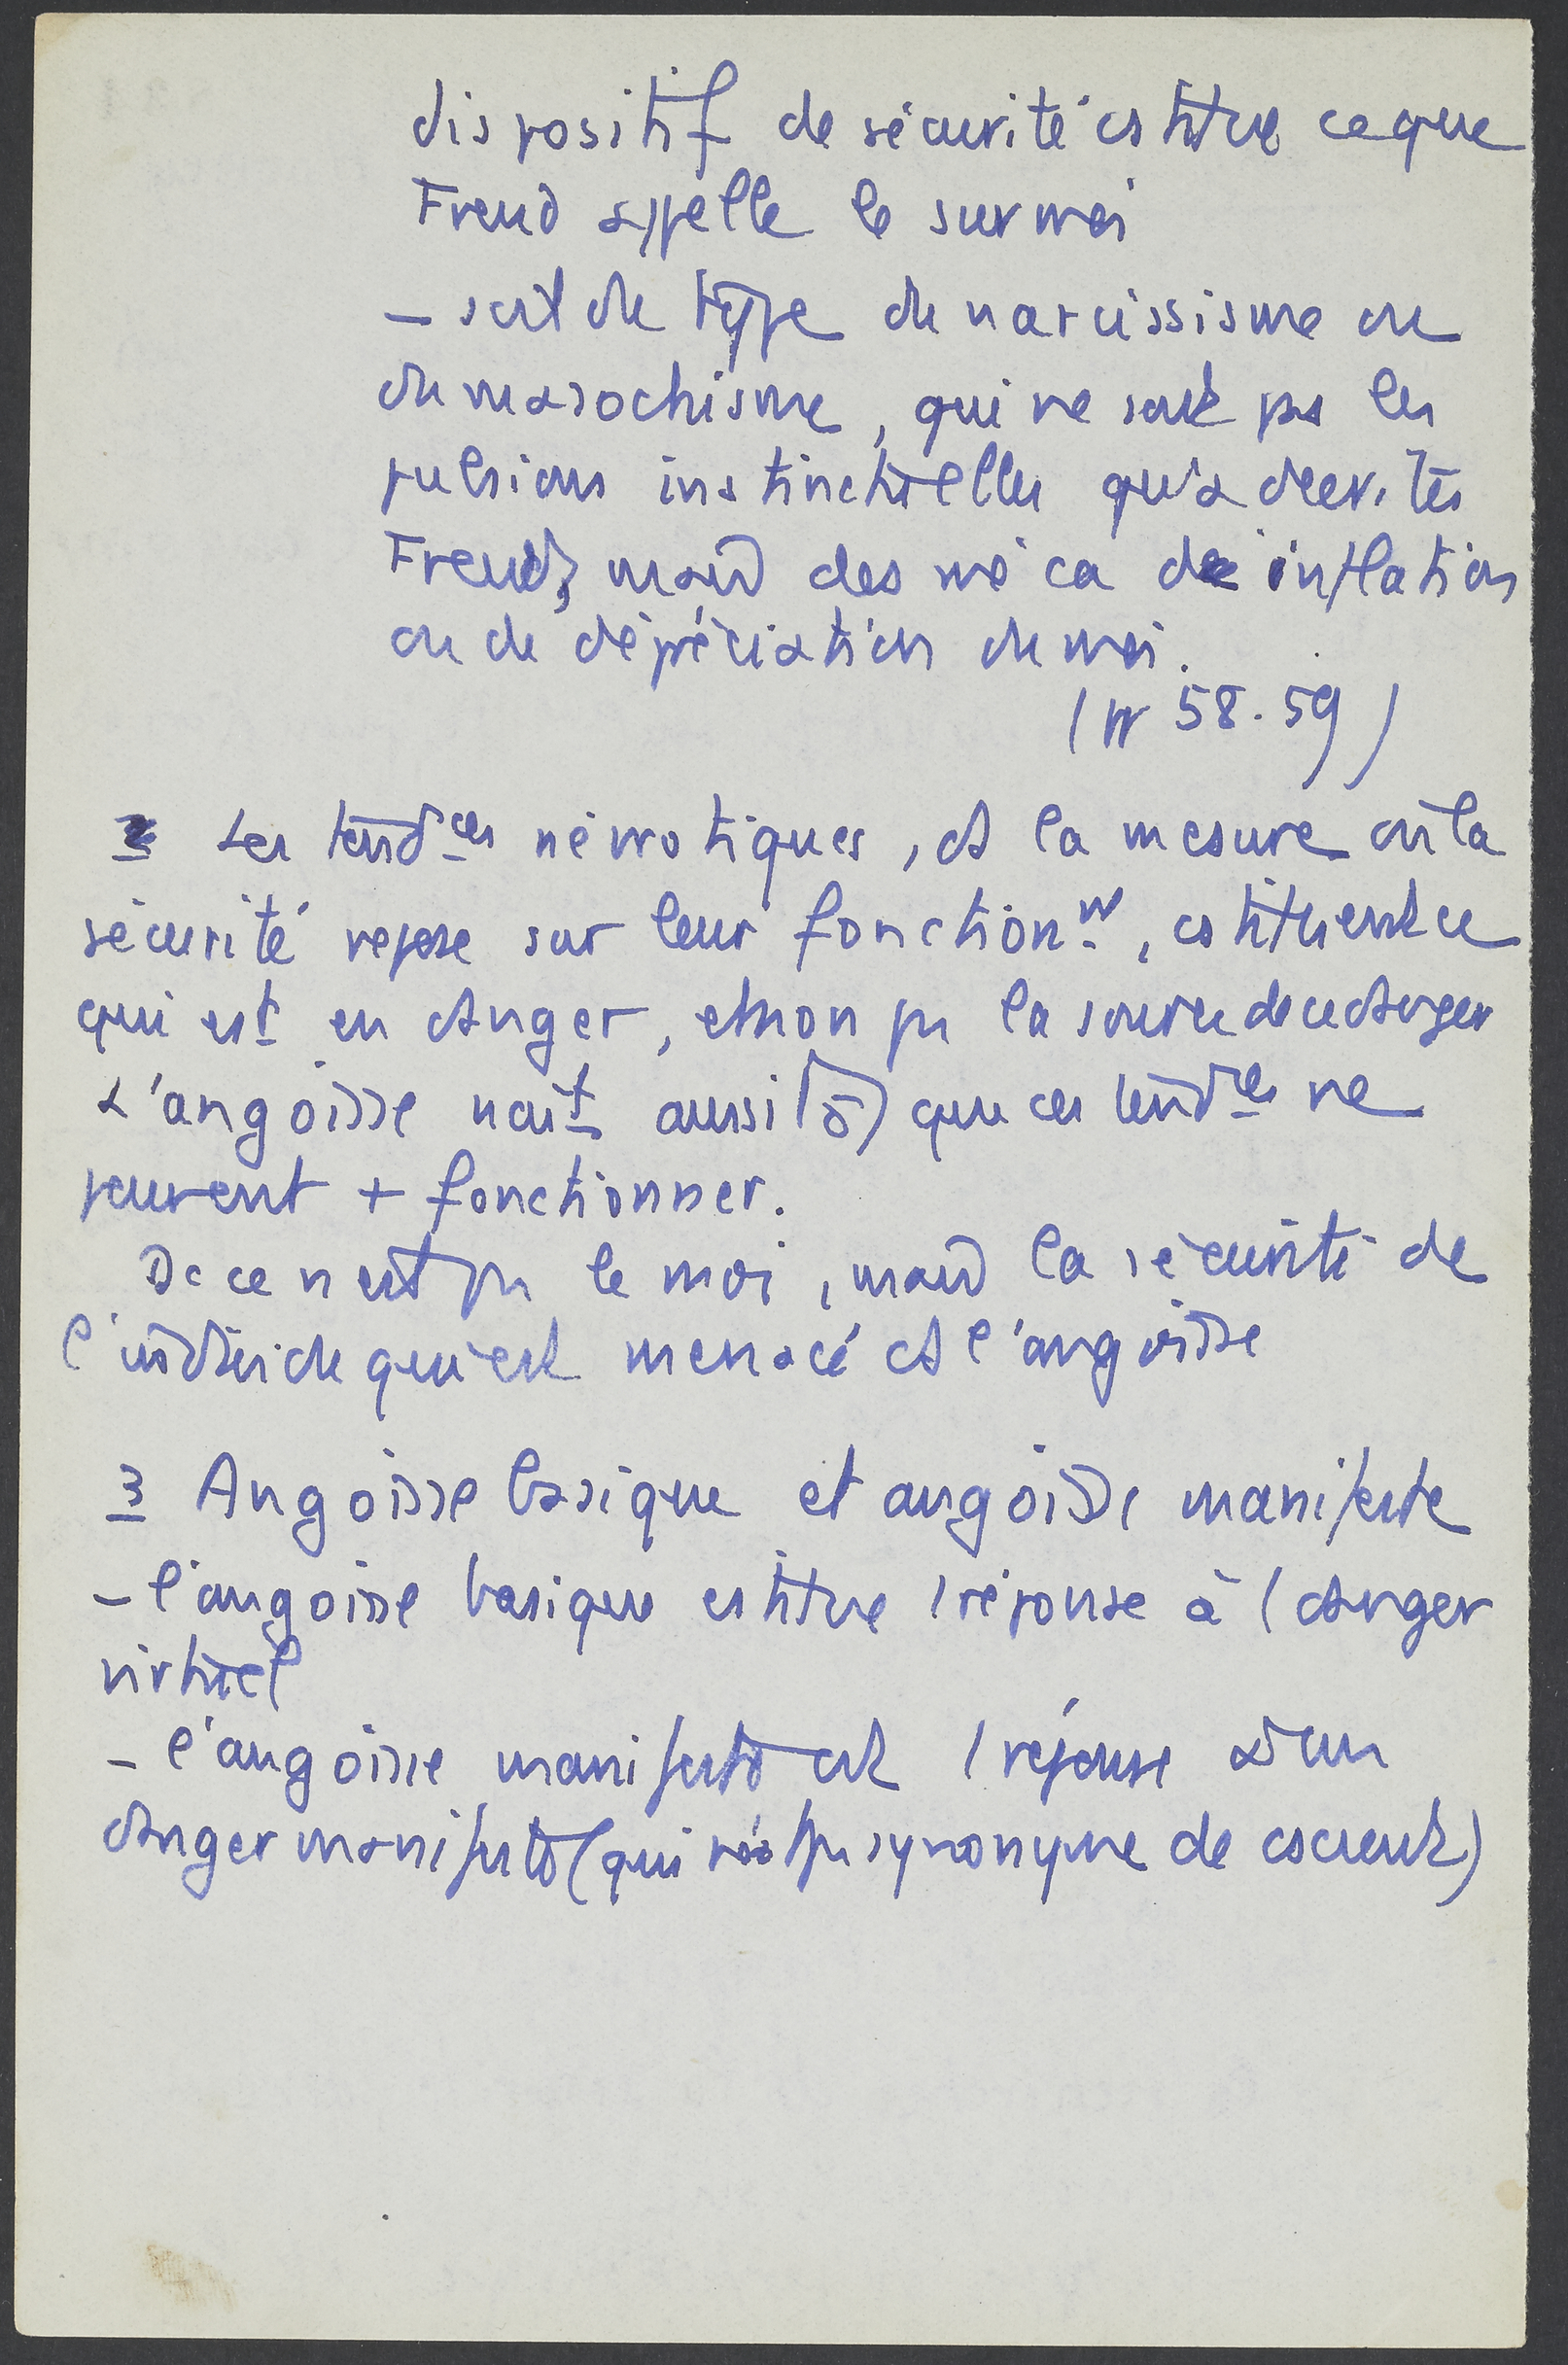 dispositif de sécurité cstitue ce que
Freud appelle le surmoi
– soit du type du narcissisme ou
du masochisme, qui ne sont pas les
pulsions instinctuelles qu'a décrites
Freud, mais des méca de inflation
ou de dépréciation du moi.
(pp 58.59)
2 Les tendces névrotiques, ds la mesure où la
sécurité repose sur leur fonctionnt, cstituent ce
qui est en danger, et non pas la source de ce danger
L'angoisse naît aussitôt que ces tendces ne
peuvent + fonctionner.
Dc ce n'est pas le moi, mais la sécurité de
l'individu qui est menacé ds l'angoisse
3 Angoisse basique et angoisse manifeste
– l'angoisse basique cstitue 1 réponse à 1 danger
virtuel
– l'angoisse manifeste est 1 réponse à un
danger manifeste (qui n'est pas synonyme de cscient)